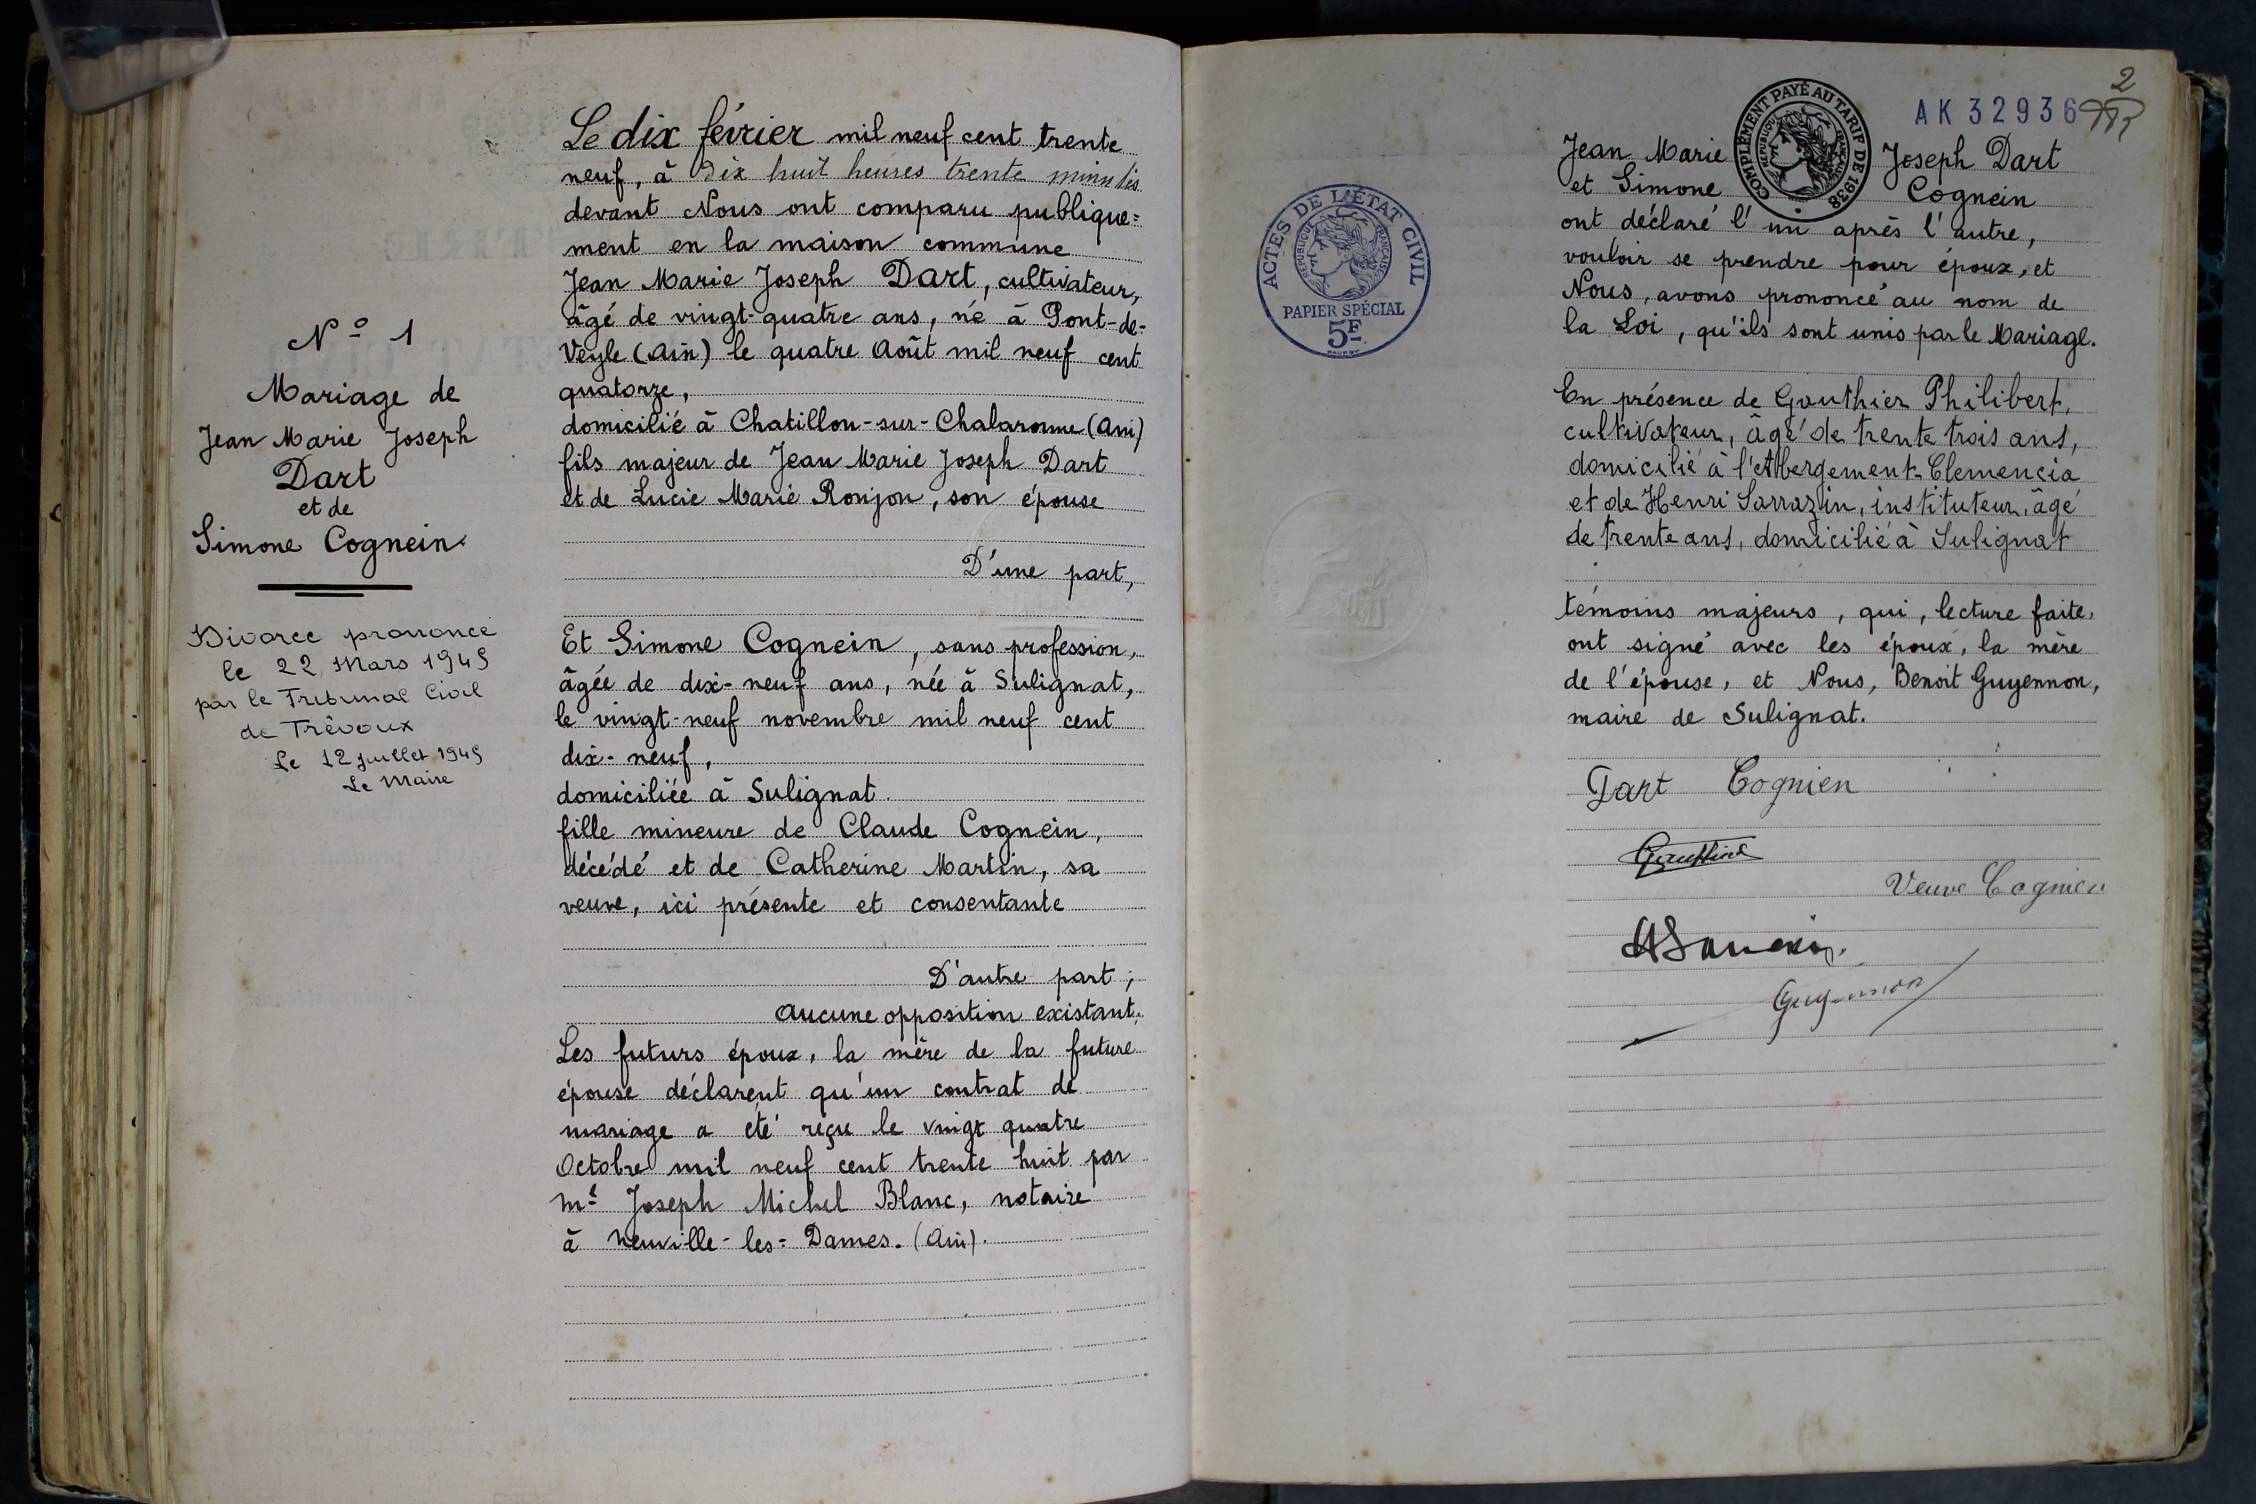 N° 1
Mariage de
Jean Marie Joseph
Dart
et de
Simone Cognein
Divorce prononcé
le 22 Mars 1949
par le Tribunal Civil
de Trévoux
Le 12 Juillet 1949
Le Maire
Le dix février mil neuf cent trente
neuf, à dix huit heures trente minutes
devant Nous ont comparu publique=
ment en la maison commune
Jean Marie Joseph Dart, cultivateur,
âgé de vingt-quatre ans, né à Pont-de-
Veyle (Ain) le quatre Août mil neuf cent
quatorze,
domicilié à Chatillon-sur-Chalaronne (Ain)
fils majeur de Jean Marie Joseph Dart
et de Lucie Marie Ronjon, son épouse
D'une part,
Et Simone Cognein, sans profession,
âgée de dix-neuf ans, née à Sulignat,
le vingt-neuf novembre mil neuf cent
dix-neuf,
domiciliée à Sulignat.
fille mineure de Claude Cognein,
décédé et de Catherine Martin, sa
veuve, ici présente et consentante
D'autre part;
Aucune opposition existant.
Les futurs époux, la mère de la future
épouse déclarent qu'un contrat de
mariage a été reçu le vingt quatre
Octobre mil neuf cent trente huit par
Me Joseph Michel Blanc, notaire
à Neuville-les=Dames. (Ain).
2
AK 32936
COMPLÉMENT PAYÉ AU TARIF DE 1938
RÉPUBLIQUE FRANÇAISE
ACTES DE L'ÉTAT CIVIL
RÉPUBLIQUE FRANÇAISE
PAPIER SPÉCIAL
5F
Jean Marie Joseph Dart
et Simone Cognein
ont déclaré l'un après l'autre,
vouloir se prendre pour époux, et
Nous, avons prononcé au nom de
la Loi, qu'ils sont unis par le Mariage.
En présence de Gauthier Philibert,
cultivateur, âgé de trente trois ans,
domicilié à l'Abergement-Clemencia
et de Henri Sarrazin, instituteur, âgé
de trente ans, domicilié à Sulignat
témoins majeurs, qui, lecture faite,
ont signé avec les époux, la mère
de l'épouse, et Nous, Benoit Guyennon,
maire de Sulignat.
Dart Cognien
Veuve Cognien
Guyennon